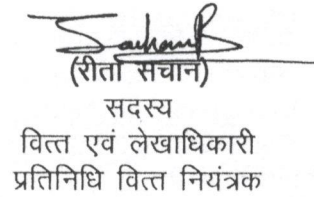 (रीता सचान)
सदस्य
वित्त एवं लेखाधिकारी
प्रतिनिधि वित्त नियंत्रक